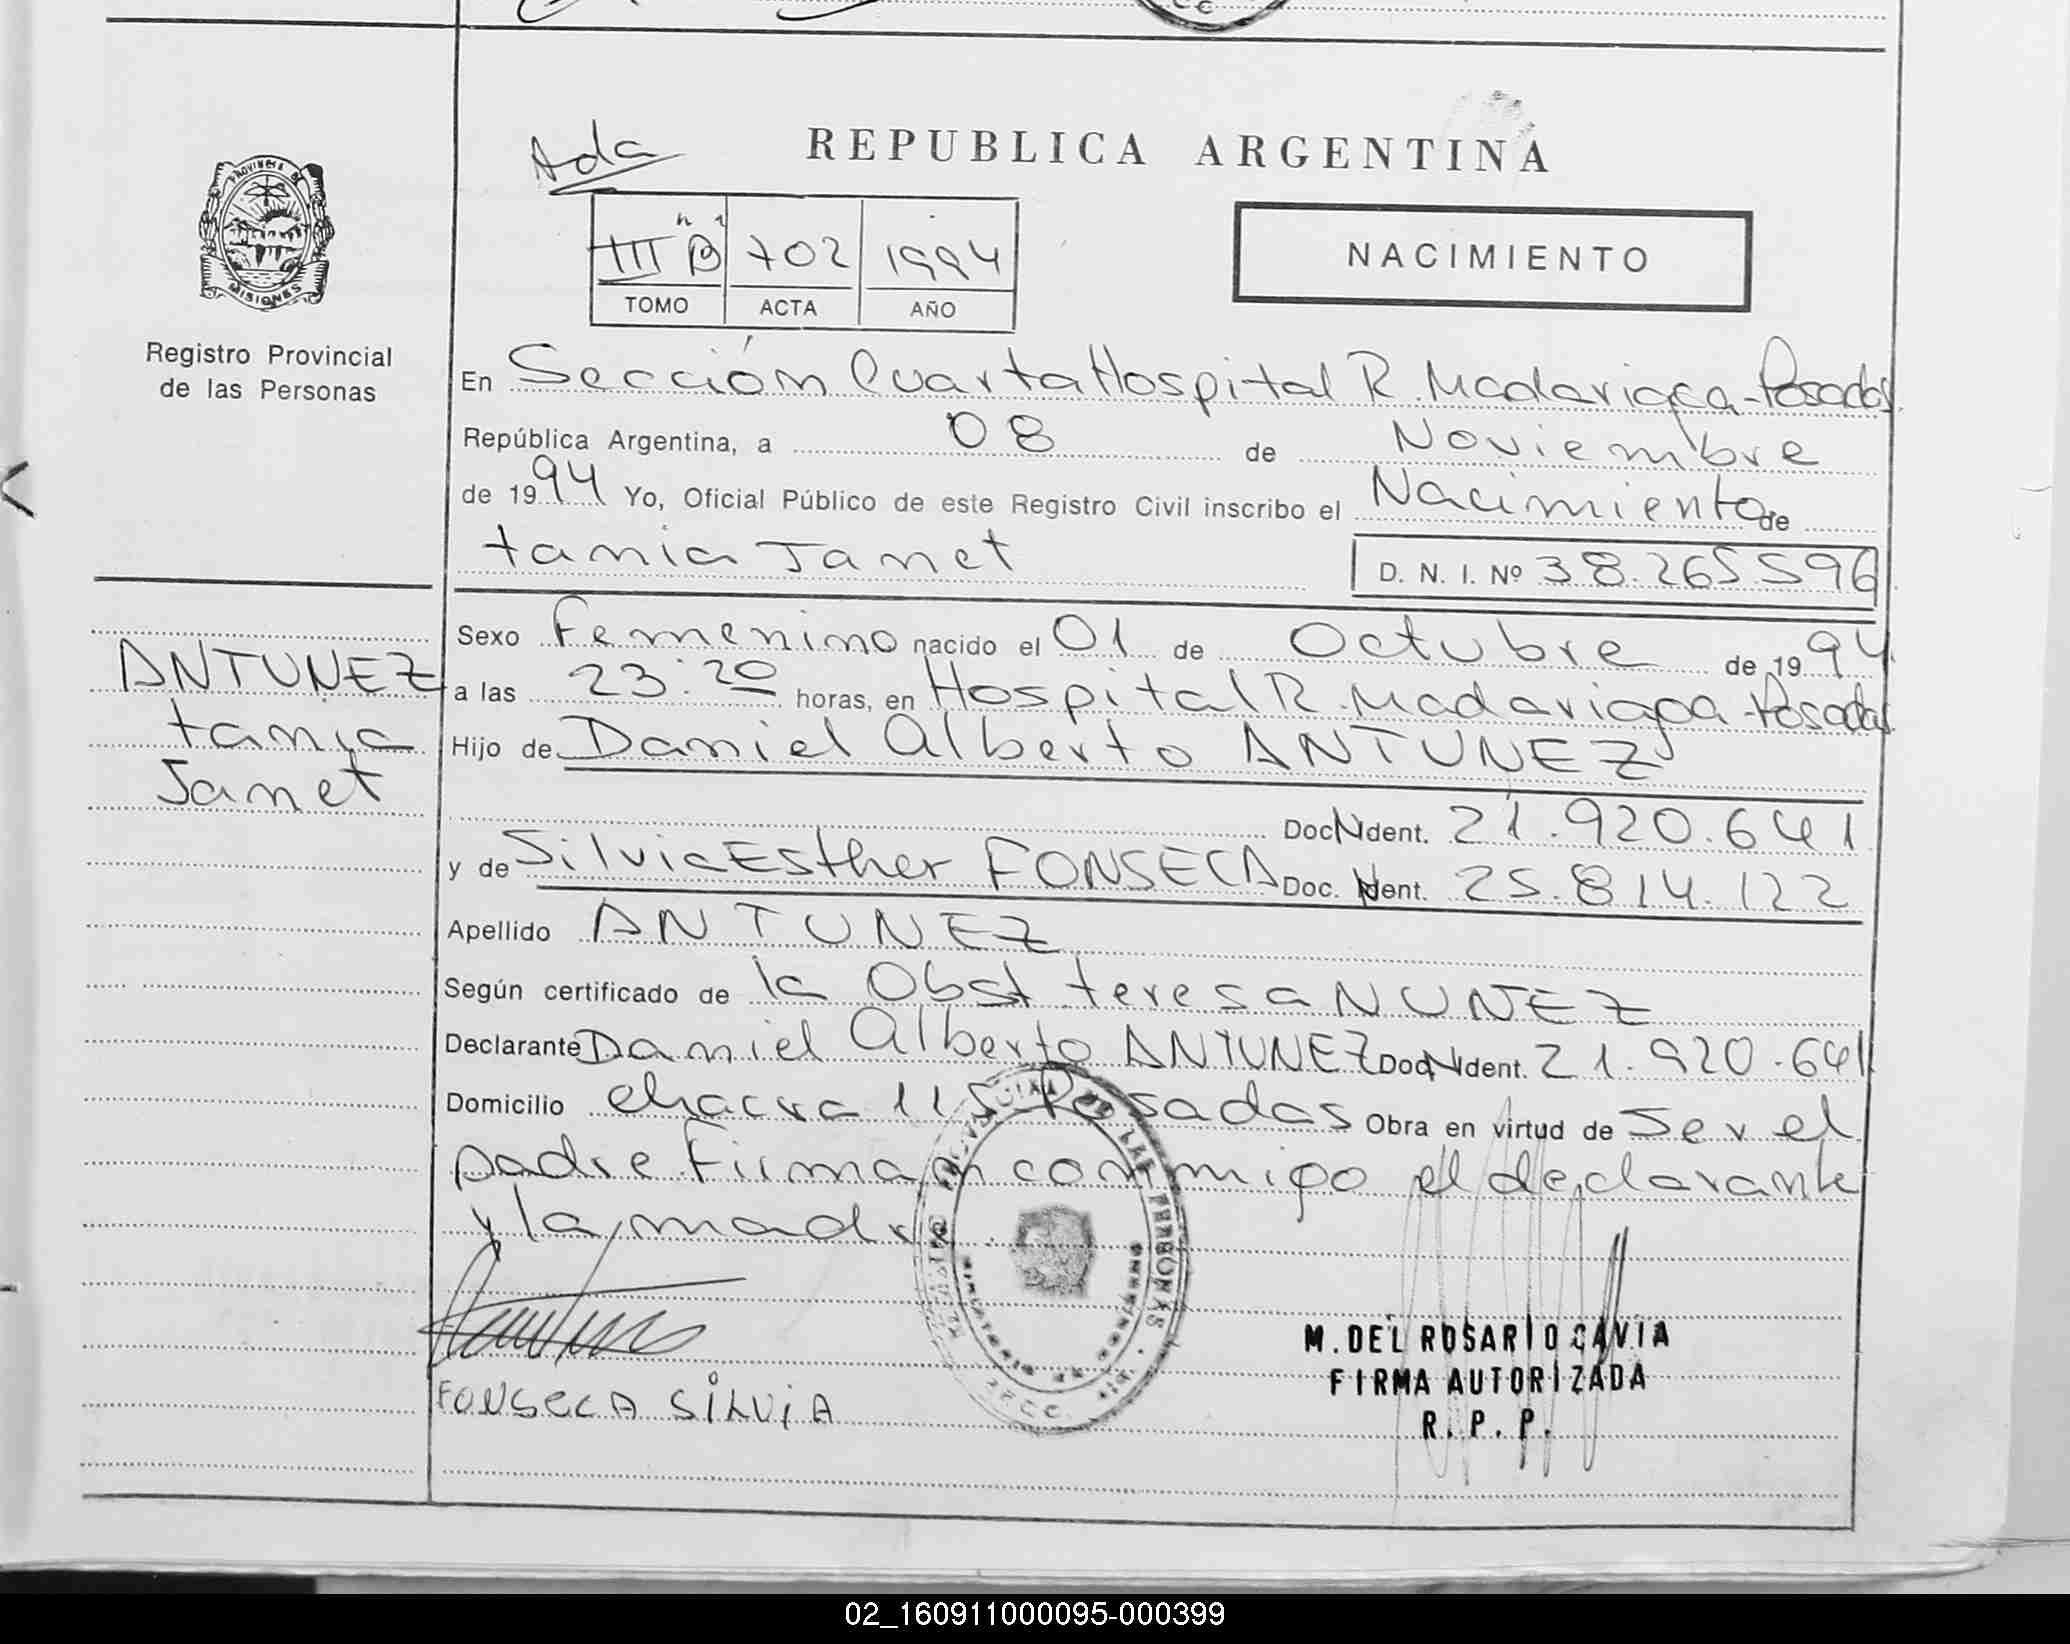 Ada
REPUBLICA ARGENTINA
III B 702 1994
TOMO ACTA AÑO
NACIMIENTO
PROVINCIA DE
MISIONES
Registro Provincial
de las Personas
En Sección Cuarta Hospital R. Madariaga - Posadas
República Argentina, a 08 de Noviembre
de 1994 Yo, Oficial Público de este Registro Civil inscribo el Nacimiento de
tania Janet D. N. I. Nº 38.265.596
ANTUNEZ
tania
Janet
Sexo Femenino nacido el 01 de Octubre de 1994
a las 23:20 horas, en Hospital R. Madariaga - Posadas
Hijo de Daniel Alberto ANTUNEZ
Doc N Ident. 21.920.641
y de Silvia Esther FONSECA Doc. N Ident. 25.814.122
Apellido ANTUNEZ
Según certificado de la Obst teresa NUNEZ
Declarante Daniel Alberto ANTUNEZ Doc N Ident. 21.920.641
Domicilio chacra 115 Posadas Obra en virtud de Ser el
padre Firman conmigo el declarante
y la madre
FONSECA SILViA
M. DEL ROSARIO CAVIA
FIRMA AUTORIZADA
R. P. P.
02_160911000095-000399